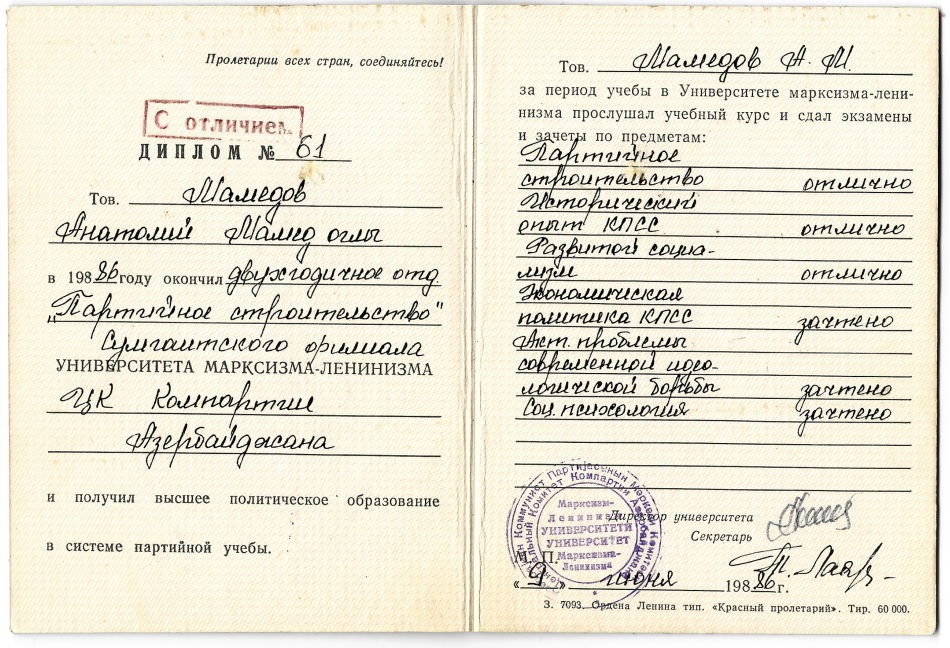 Пролетарии всех стран, соединяйтесь!
С отличием
ДИПЛОМ № 61
Тов. Мамедов
Анатолий Мамед оглы
в 1986 году окончил двухгодичное отд.
"Партийное строительство"
Сумгаитского филиала
УНИВЕРСИТЕТА МАРКСИЗМА-ЛЕНИНИЗМА
ЦК Компартии
Азербайджана
и получил высшее политическое образование
в системе партийной учебы.
Тов. Мамедов А. М.
за период учебы в Университете марксизма-лени-
низма прослушал учебный курс и сдал экзамены
и зачеты по предметам:
Партийное
строительство отлично
Исторический
опыт КПСС отлично
Развитой социа-
лизм отлично
Экономическая
политика КПСС зачтено
Акт. проблемы
современной идео-
логической борьбы зачтено
Соц. психология зачтено
Коммунист Партијасынын Мәркәзи Комитәси
Центральный Комитет Компартии Азербайджана
Марксизм-
Ленинизм
УНИВЕРСИТЕТИ
УНИВЕРСИТЕТ
Марксизма-
Ленинизма
Директор университета
Секретарь
М. П.
«9» июня 1986 г.
З. 7093. Ордена Ленина тип. «Красный пролетарий». Тир. 60 000.